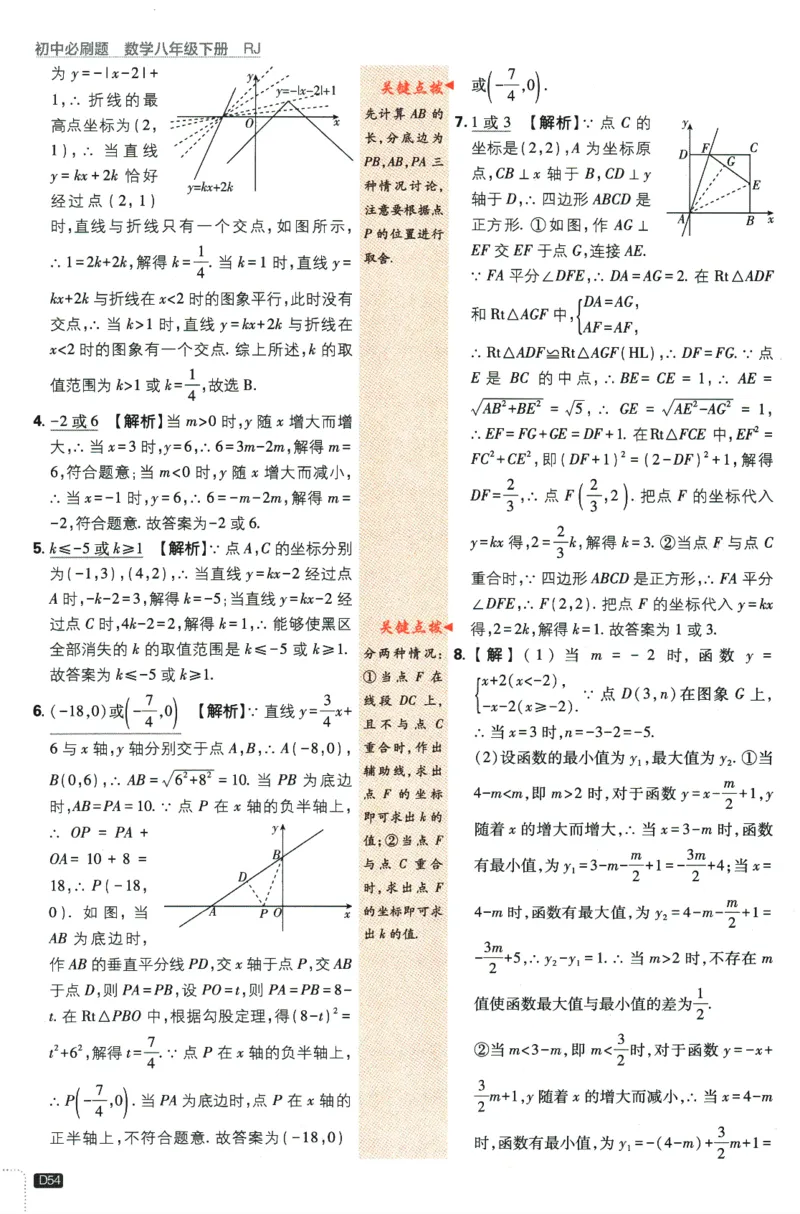 初中必刷题 数学八年级下册 RJ
为 y=-|x-2|+
1,∴ 折线的最
高点坐标为(2,
1),∴ 当直线
y=kx+2k 恰好
经过点(2,1)
y
y=-|x-2|+1
O
x
y=kx+2k
时,直线与折线只有一个交点,如图所示,
∴ 1=2k+2k,解得 k=1/4. 当 k=1 时,直线 y=
kx+2k 与折线在 x<2 时的图象平行,此时没有
交点,∴ 当 k>1 时,直线 y=kx+2k 与折线在
x<2 时的图象有一个交点. 综上所述,k 的取
值范围为 k>1 或 k=1/4,故选 B.
4. -2 或 6 【解析】当 m>0 时,y 随 x 增大而增
大,∴ 当 x=3 时,y=6,∴ 6=3m-2m,解得 m=
6,符合题意;当 m<0 时,y 随 x 增大而减小,
∴ 当 x=-1 时,y=6,∴ 6=-m-2m,解得 m=
-2,符合题意. 故答案为-2 或 6.
5. k≤-5 或 k≥1 【解析】∵ 点 A,C 的坐标分别
为(-1,3),(4,2),∴ 当直线 y=kx-2 经过点
A 时,-k-2=3,解得 k=-5;当直线 y=kx-2 经
过点 C 时,4k-2=2,解得 k=1,∴ 能够使黑区
全部消失的 k 的取值范围是 k≤-5 或 k≥1.
故答案为 k≤-5 或 k≥1.
6. (-18,0)或(-7/4,0) 【解析】∵ 直线 y=3/4x+
6 与 x 轴,y 轴分别交于点 A,B,∴ A(-8,0),
B(0,6),∴ AB=√(6²+8²)=10. 当 PB 为底边
时,AB=PA=10. ∵ 点 P 在 x 轴的负半轴上,
∴ OP = PA +
OA = 10 + 8 =
18,∴ P(-18,
0). 如图,当
AB 为底边时,
y
B
D
A
P
O
x
作 AB 的垂直平分线 PD,交 x 轴于点 P,交 AB
于点 D,则 PA=PB,设 PO=t,则 PA=PB=8-
t. 在 Rt△PBO 中,根据勾股定理,得(8-t)²=
t²+6²,解得 t=7/4. ∵ 点 P 在 x 轴的负半轴上,
∴ P(-7/4,0). 当 PA 为底边时,点 P 在 x 轴的
正半轴上,不符合题意. 故答案为(-18,0)
关键点拨
先计算 AB 的
长,分底边为
PB,AB,PA 三
种情况讨论,
注意要根据点
P 的位置进行
取舍.
关键点拨
分两种情况:
①当点 F 在
线段 DC 上,
且不与点 C
重合时,作出
辅助线,求出
点 F 的坐标
即可求出 k 的
值;②当点 F
与点 C 重合
时,求出点 F
的坐标即可求
出 k 的值.
或(-7/4,0).
7. 1 或 3 【解析】∵ 点 C 的
坐标是(2,2),A 为坐标原
点,CB⊥x 轴于 B,CD⊥y
轴于 D,∴ 四边形 ABCD 是
正方形. ①如图,作 AG⊥
EF 交 EF 于点 G,连接 AE.
y
D
F
C
G
E
A
B
x
∵ FA 平分∠DFE,∴ DA=AG=2. 在 Rt△ADF
和 Rt△AGF 中,{DA=AG,
AF=AF,
∴ Rt△ADF≌Rt△AGF(HL),∴ DF=FG. ∵ 点
E 是 BC 的中点,∴ BE= CE = 1,∴ AE =
√(AB²+BE²) = √5,∴ GE = √(AE²-AG²) = 1,
∴ EF=FG+GE=DF+1. 在Rt△FCE 中,EF²=
FC²+CE²,即(DF+1)²=(2-DF)²+1,解得
DF=2/3,∴ 点 F(2/3,2). 把点 F 的坐标代入
y=kx 得,2=2/3k,解得 k=3. ②当点 F 与点 C
重合时,∵ 四边形 ABCD 是正方形,∴ FA 平分
∠DFE,∴ F(2,2). 把点 F 的坐标代入 y=kx
得,2=2k,解得 k=1. 故答案为 1 或 3.
8. 【解】(1)当 m = -2 时,函数 y =
{x+2(x<-2),
-x-2(x≥-2). ∵ 点 D(3,n)在图象 G 上,
∴ 当 x=3 时,n=-3-2=-5.
(2)设函数的最小值为 y₁,最大值为 y₂. ①当
4-m<m,即 m>2 时,对于函数 y=x-m/2+1,y
随着 x 的增大而增大,∴ 当 x=3-m 时,函数
有最小值,为 y₁=3-m-m/2+1=-3m/2+4;当 x=
4-m 时,函数有最大值,为 y₂=4-m-m/2+1=
-3m/2+5,∴ y₂-y₁=1. ∴ 当 m>2 时,不存在 m
值使函数最大值与最小值的差为1/2.
②当 m<3-m,即 m<3/2时,对于函数 y=-x+
3/2m+1,y 随着 x 的增大而减小,∴ 当 x=4-m
时,函数有最小值,为 y₁=-(4-m)+3/2m+1=
D54